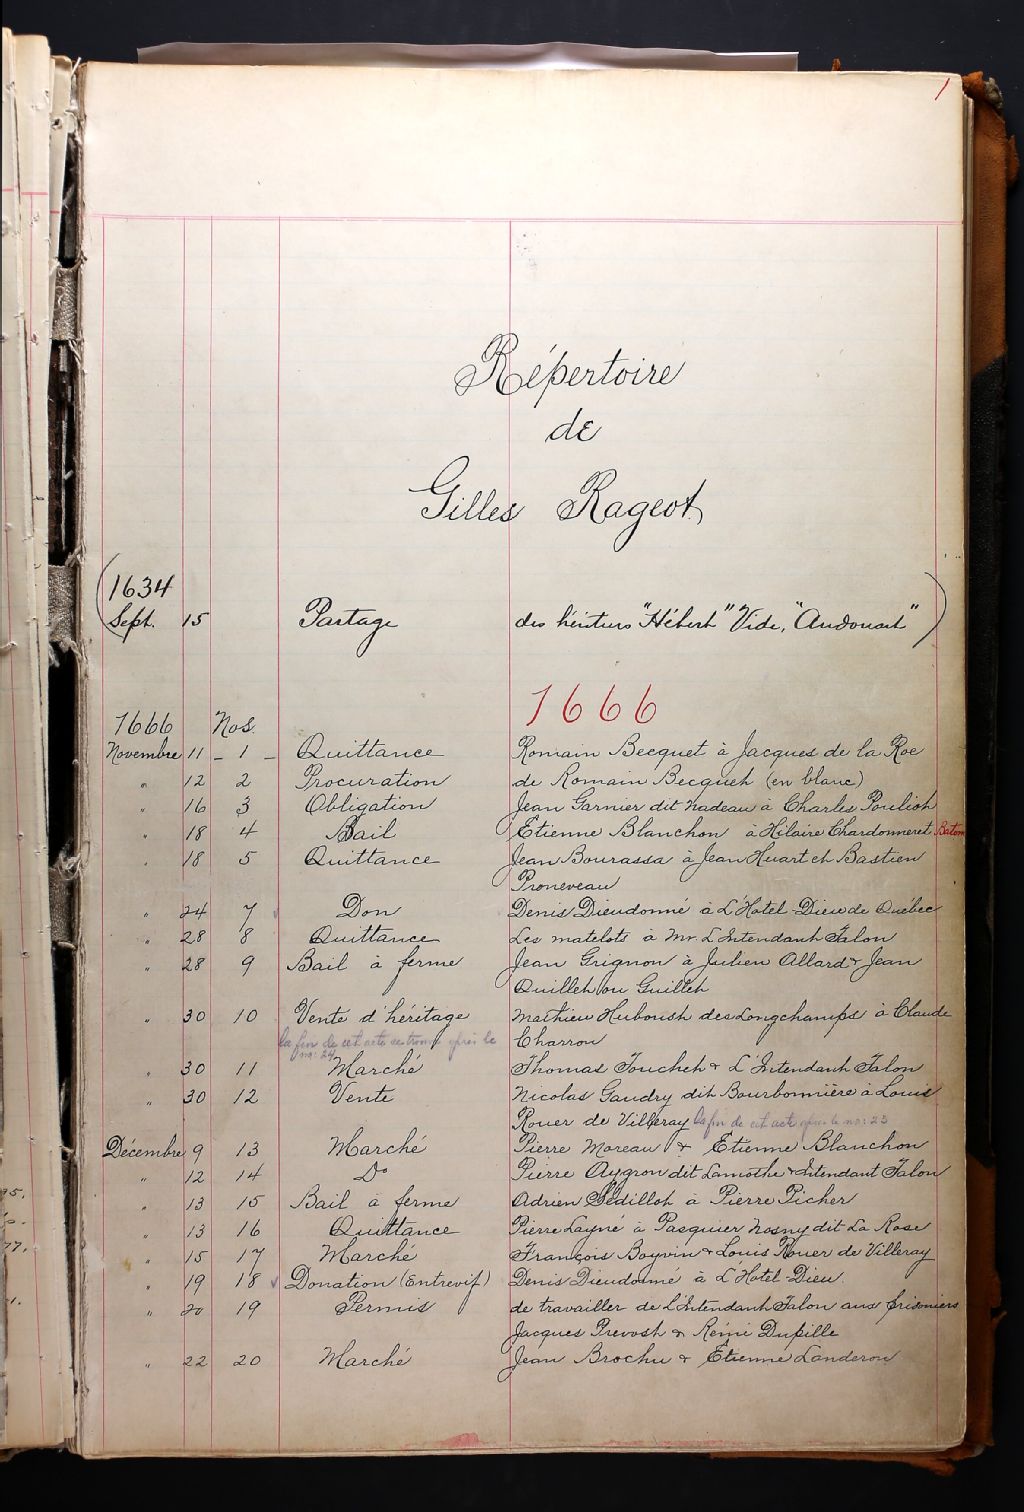 1
Répertoire
de
Gilles Rageot
(1634
Sept. 15 Partage des héritiers "Hébert" Vide, "Audouart")
1666
1666 Nos.
Novembre 11 - 1 - Quittance Romain Becquet à Jacques de la Roe
" 12 2 Procuration de Romain Becquet (en blanc)
" 16 3 Obligation Jean Garnier dit Nadeau à Charles Pouliot
" 18 4 Bail Etienne Blanchon à Hilaire Chardonneret Baton
" 18 5 Quittance Jean Bourassa à Jean Huart et Bastien
Proneveau
" 24 7 Don Denis Dieudonné à L'Hotel-Dieu de Québec
" 28 8 Quittance Les matelots à Mr. L'Intendant Talon
" 28 9 Bail à ferme Jean Grignon à Julien Allard & Jean
Quillet ou Guillet
" 30 10 Vente d'héritage Mathieu Huboust des Longchamps à Claude
la fin de cet acte se trouve après le Charron
no: 24
" 30 11 Marché Thomas Touchet & L'Intendant Talon
" 30 12 Vente Nicolas Gaudry dit Bourbonnière à Louis
Rouer de Villeray la fin de cet acte après le no: 23
Décembre 9 13 Marché Pierre Moreau & Etienne Blanchon
" 12 14 Do Pierre Aygron dit Lamothe & Intendant Talon
" 13 15 Bail à ferme Adrien Sédillot à Pierre Picher
" 13 16 Quittance Pierre Layné à Pasquier Nosny dit La Rose
" 15 17 Marché François Boyvin & Louis Rouer de Villeray
" 19 18 Donation (Entrevif) Denis Dieudonné à L'Hotel-Dieu.
" 20 19 Permis de travailler de L'Intendant Talon aux prisoniers
Jacques Prevost & Rémi Dupille
" 22 20 Marché Jean Brochu & Etienne Landeron